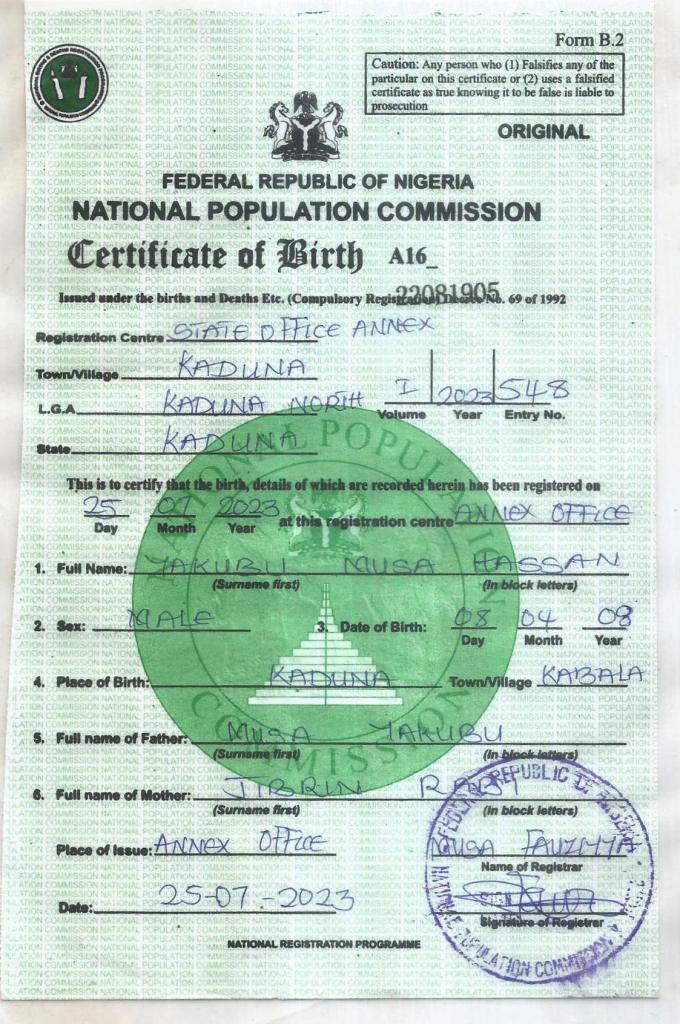 Form B.2
Caution: Any person who (1) Falsifies any of the
particular on this certificate or (2) uses a falsified
certificate as true knowing it to be false is liable to
prosecution
ORIGINAL
FEDERAL REPUBLIC OF NIGERIA
NATIONAL POPULATION COMMISSION
Certificate of Birth A16_
22081905
Issued under the births and Deaths Etc. (Compulsory Registration) Decree No. 69 of 1992
Registration Centre STATE OFFICE ANNEX
Town/Village KADUNA
L.G.A KADUNA NORTH I 2023 548
Volume Year Entry No.
State KADUNA
This is to certify that the birth, details of which are recorded herein has been registered on
25 07 2023 at this registration centre ANNEX OFFICE
Day Month Year
1. Full Name: YAKUBU MUSA HASSAN
(Surname first) (In block letters)
2. Sex: MALE 3. Date of Birth: 08 04 08
Day Month Year
4. Place of Birth: KADUNA Town/Village KABALA
5. Full name of Father: MUSA YAKUBU
(Surname first) (In block letters)
6. Full name of Mother: JIBRIN RABI
(Surname first) (In block letters)
Place of Issue: ANNEX OFFICE MUSA FAUZIYYA
Name of Registrar
Date: 25-07-2023
Signature of Registrar
NATIONAL REGISTRATION PROGRAMME
NATIONAL POPULATION COMMISSION
FEDERAL REPUBLIC OF NIGERIA
NATIONAL POPULATION COMMISSION